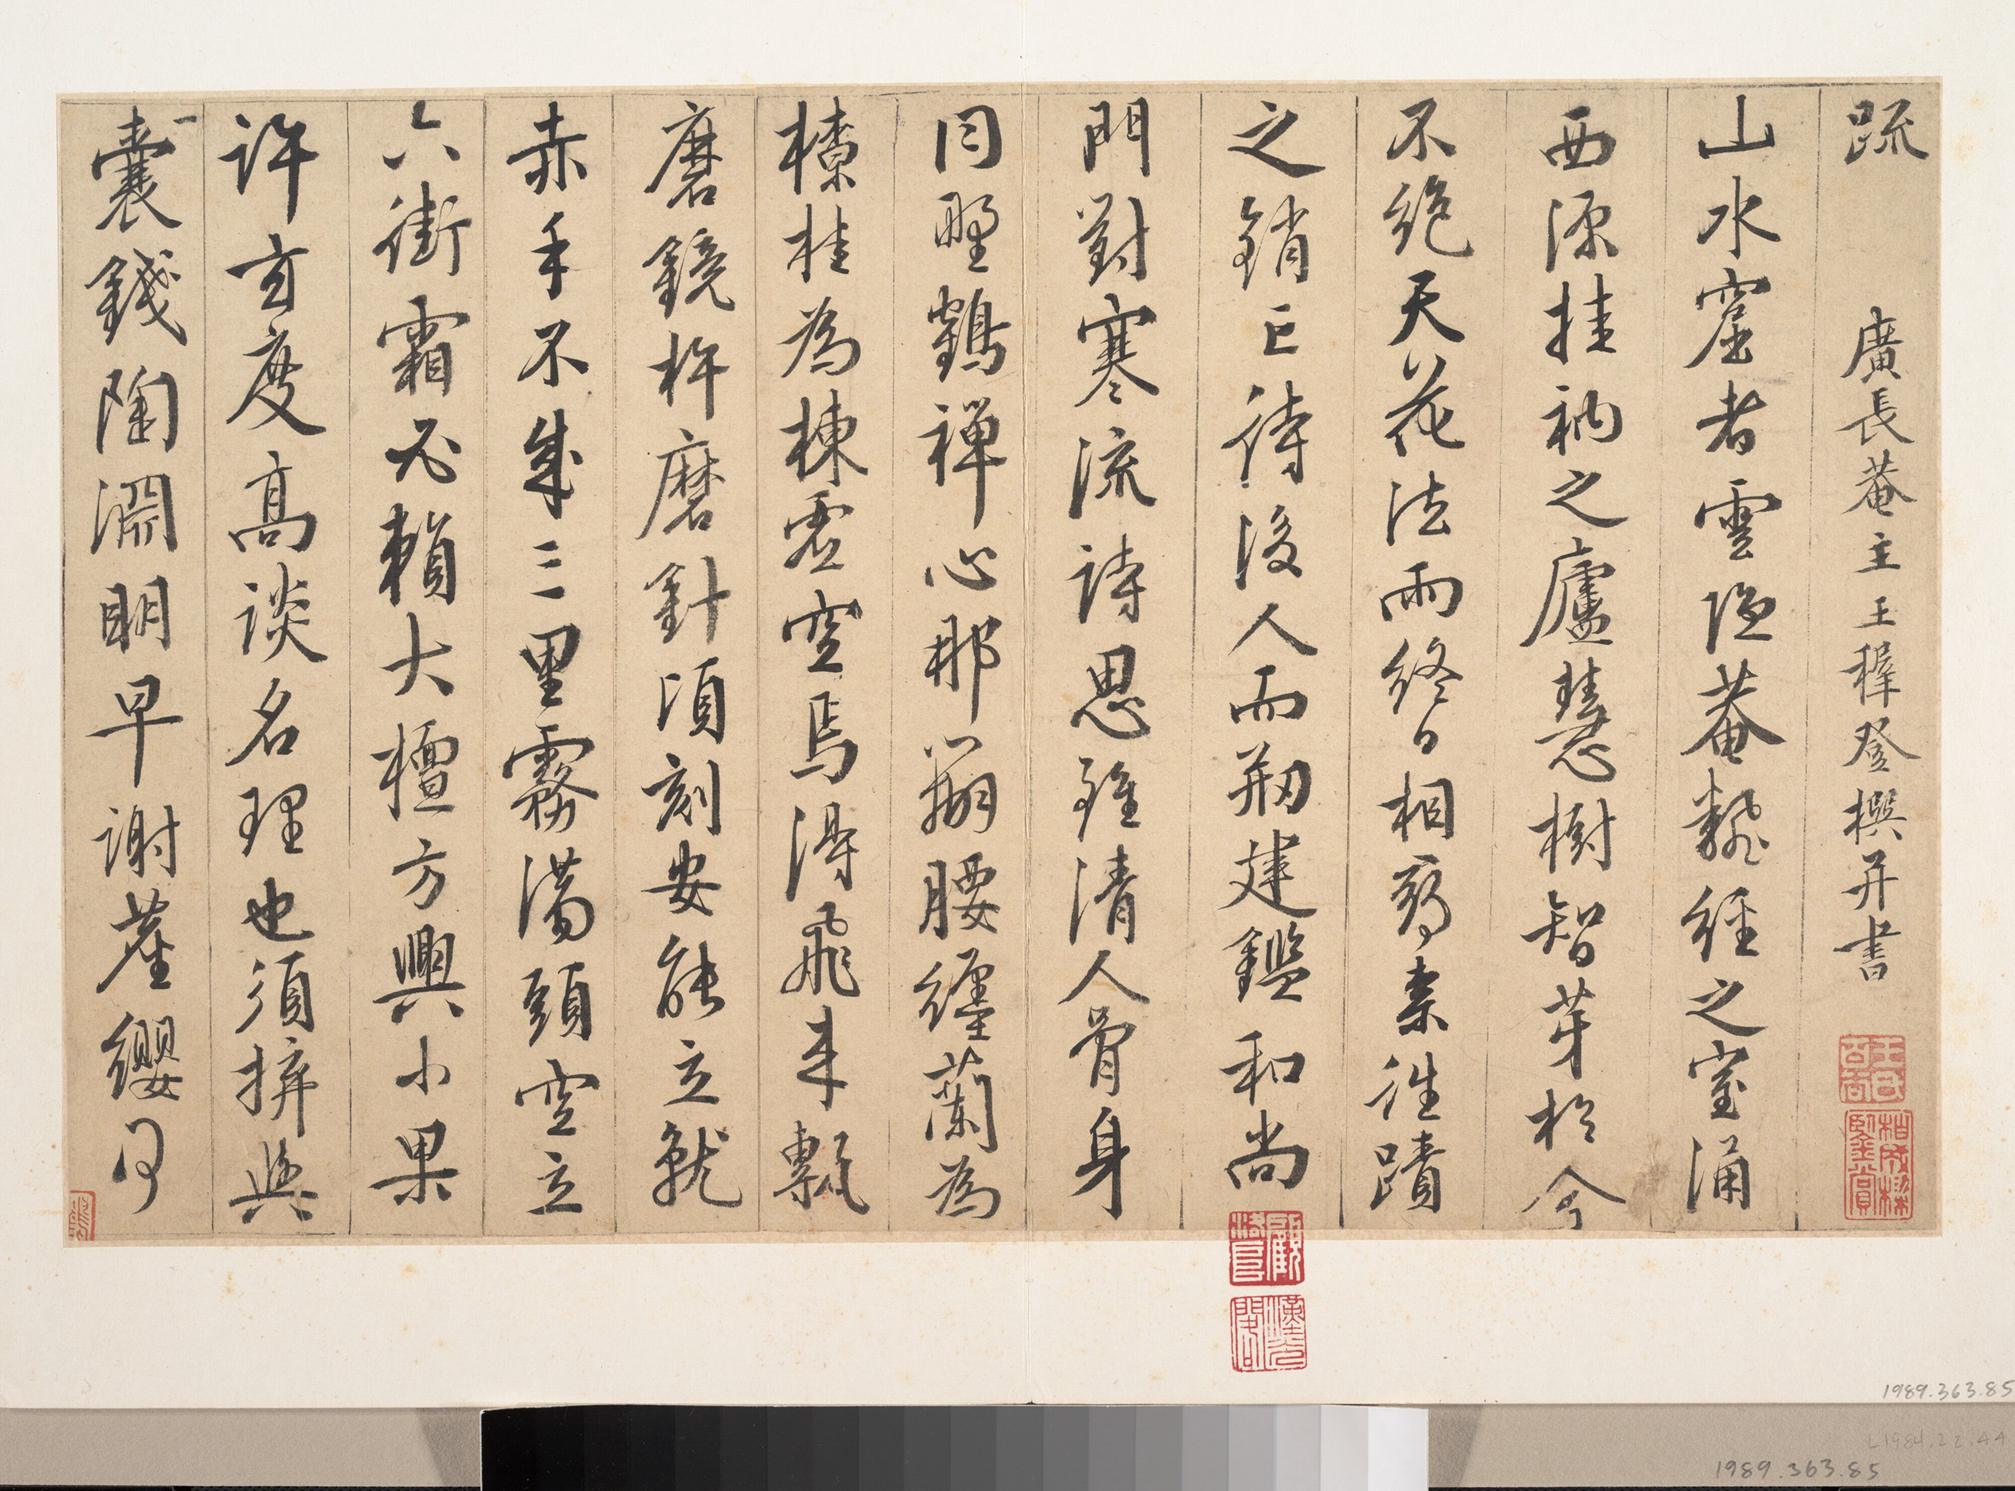 疏 廣長菴主王穉登撰并書
山水窟者雲隱菴繙經之室涌
西源挂衲之廬慧樹智芽於今
不絕天花法雨終日相於柰往蹟
之銷亡待後人而剏建鑑和尚
門對寒流詩思雖清人骨身
同野鶴禪心那為腰纏蘭為
橑桂為棟虛空焉得飛來甎
磨鏡杵磨針頃刻安能立就
赤手不成三里霧蕩頭空立
六街霜必賴大檀方興小果
許玄度高談名理也須拚與
一囊錢陶淵明早謝塵纓何
1989.363.85
L1984.22.44
1989.363.85